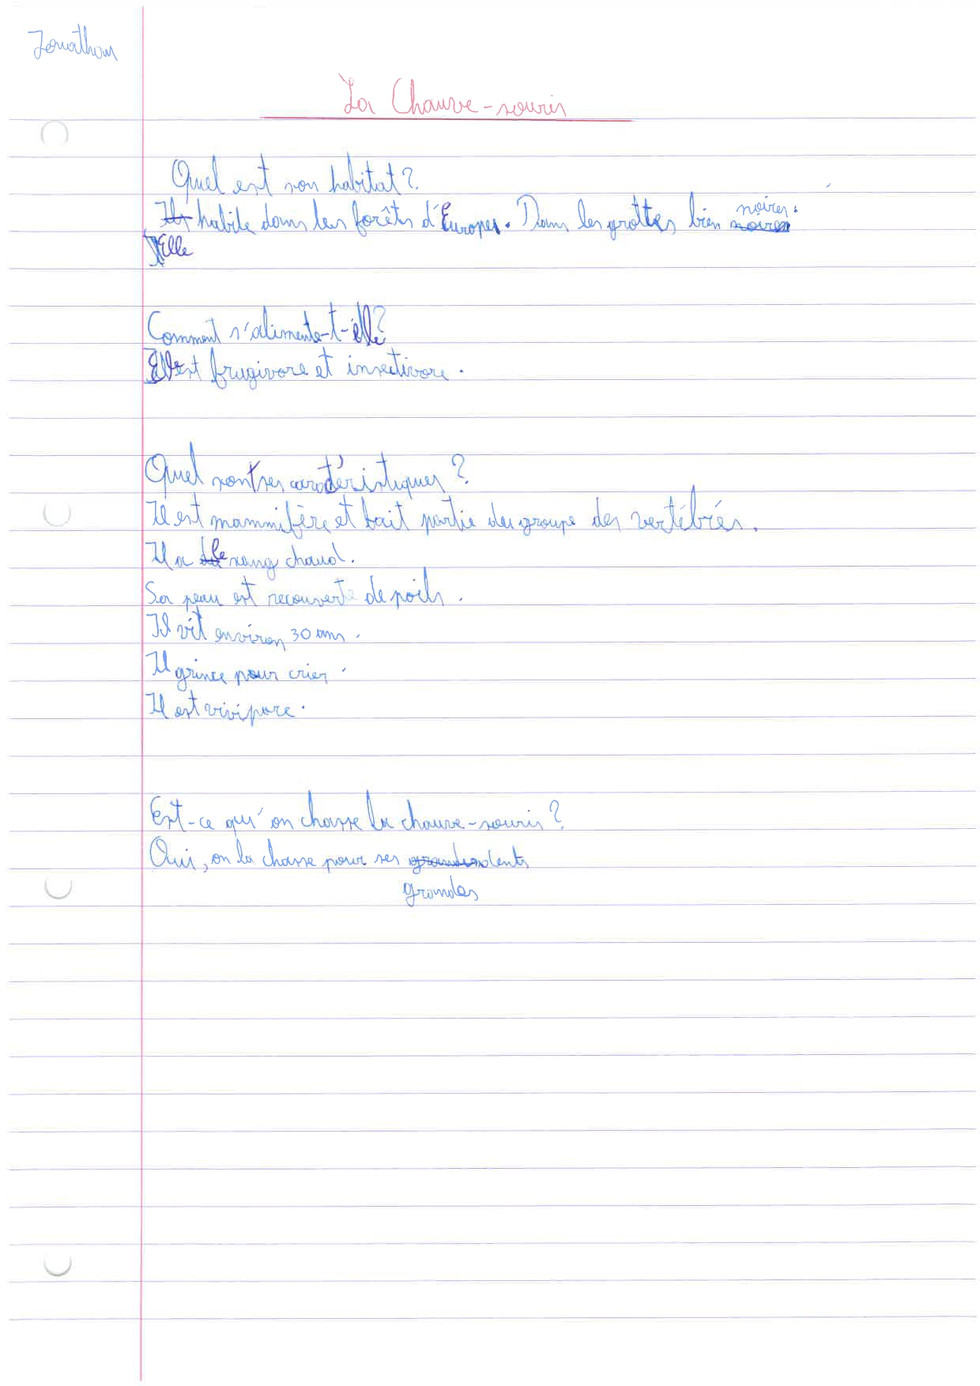 Jonathan
La Chauve-souris
Quel est son habitat ?
Il habite dans les forêts d'Europes. Dans les grottes bien noires noires.
Elle
Comment s'alimente-t-elle ?
Elle est frugivore et insectivore.
Quel sont ses caractéristiques ?
Il est mammifère et fait partie du groupe des vertébrés.
Il a le sang chaud.
Sa peau est recouverte de poils.
Il vit environ 30 ans.
Il grince pour crier.
Il est vivipare.
Est-ce qu'on chasse la chauve-souris ?
Oui, on la chasse pour ses dents
grandes